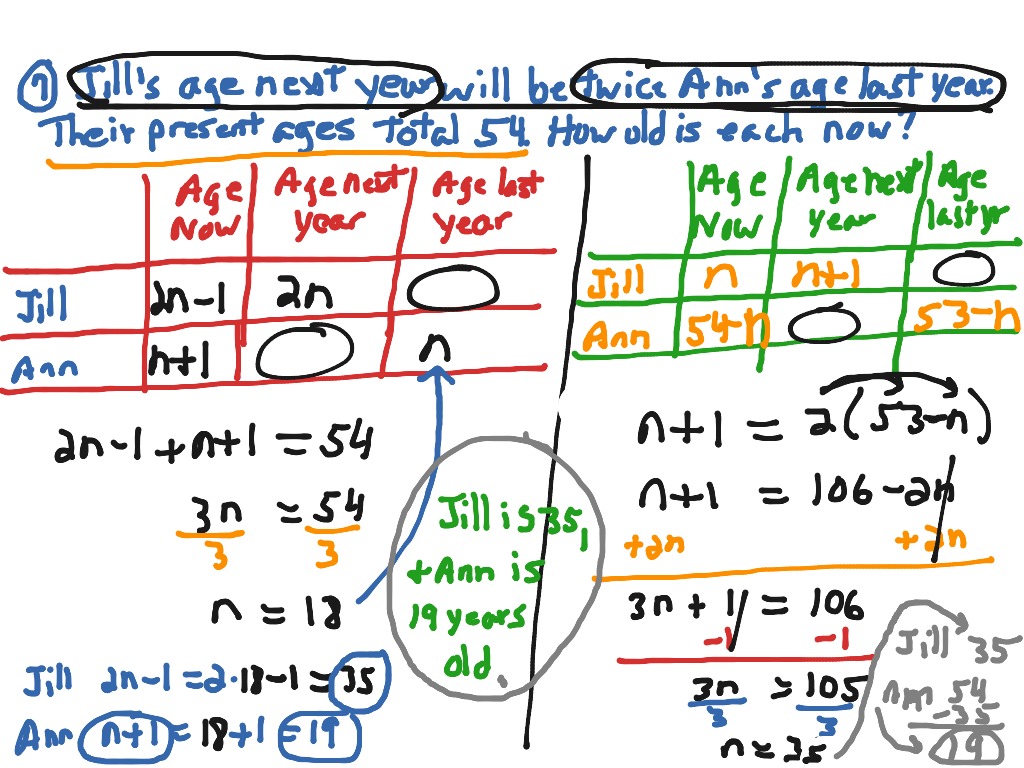 7 Jill's age next year will be twice Ann's age last year.
Their present ages total 54. How old is each now?
Age Now Age next year Age last year
Jill 2n-1 2n
Ann n+1 n
2n-1+n+1=54
3n = 54
3 3
n = 18
Jill 2n-1=2·18-1=35
Ann n+1=18+1=19
Jill is 35,
+Ann is
19 years
old.
Age Now Age next year Age last yr
Jill n n+1
Ann 54-n 53-n
n+1 = 2(53-n)
n+1 = 106-2n
+2n +2n
3n+1 = 106
-1 -1
3n = 105
3 3
n = 35
Jill 35
Ann 54
-35
19